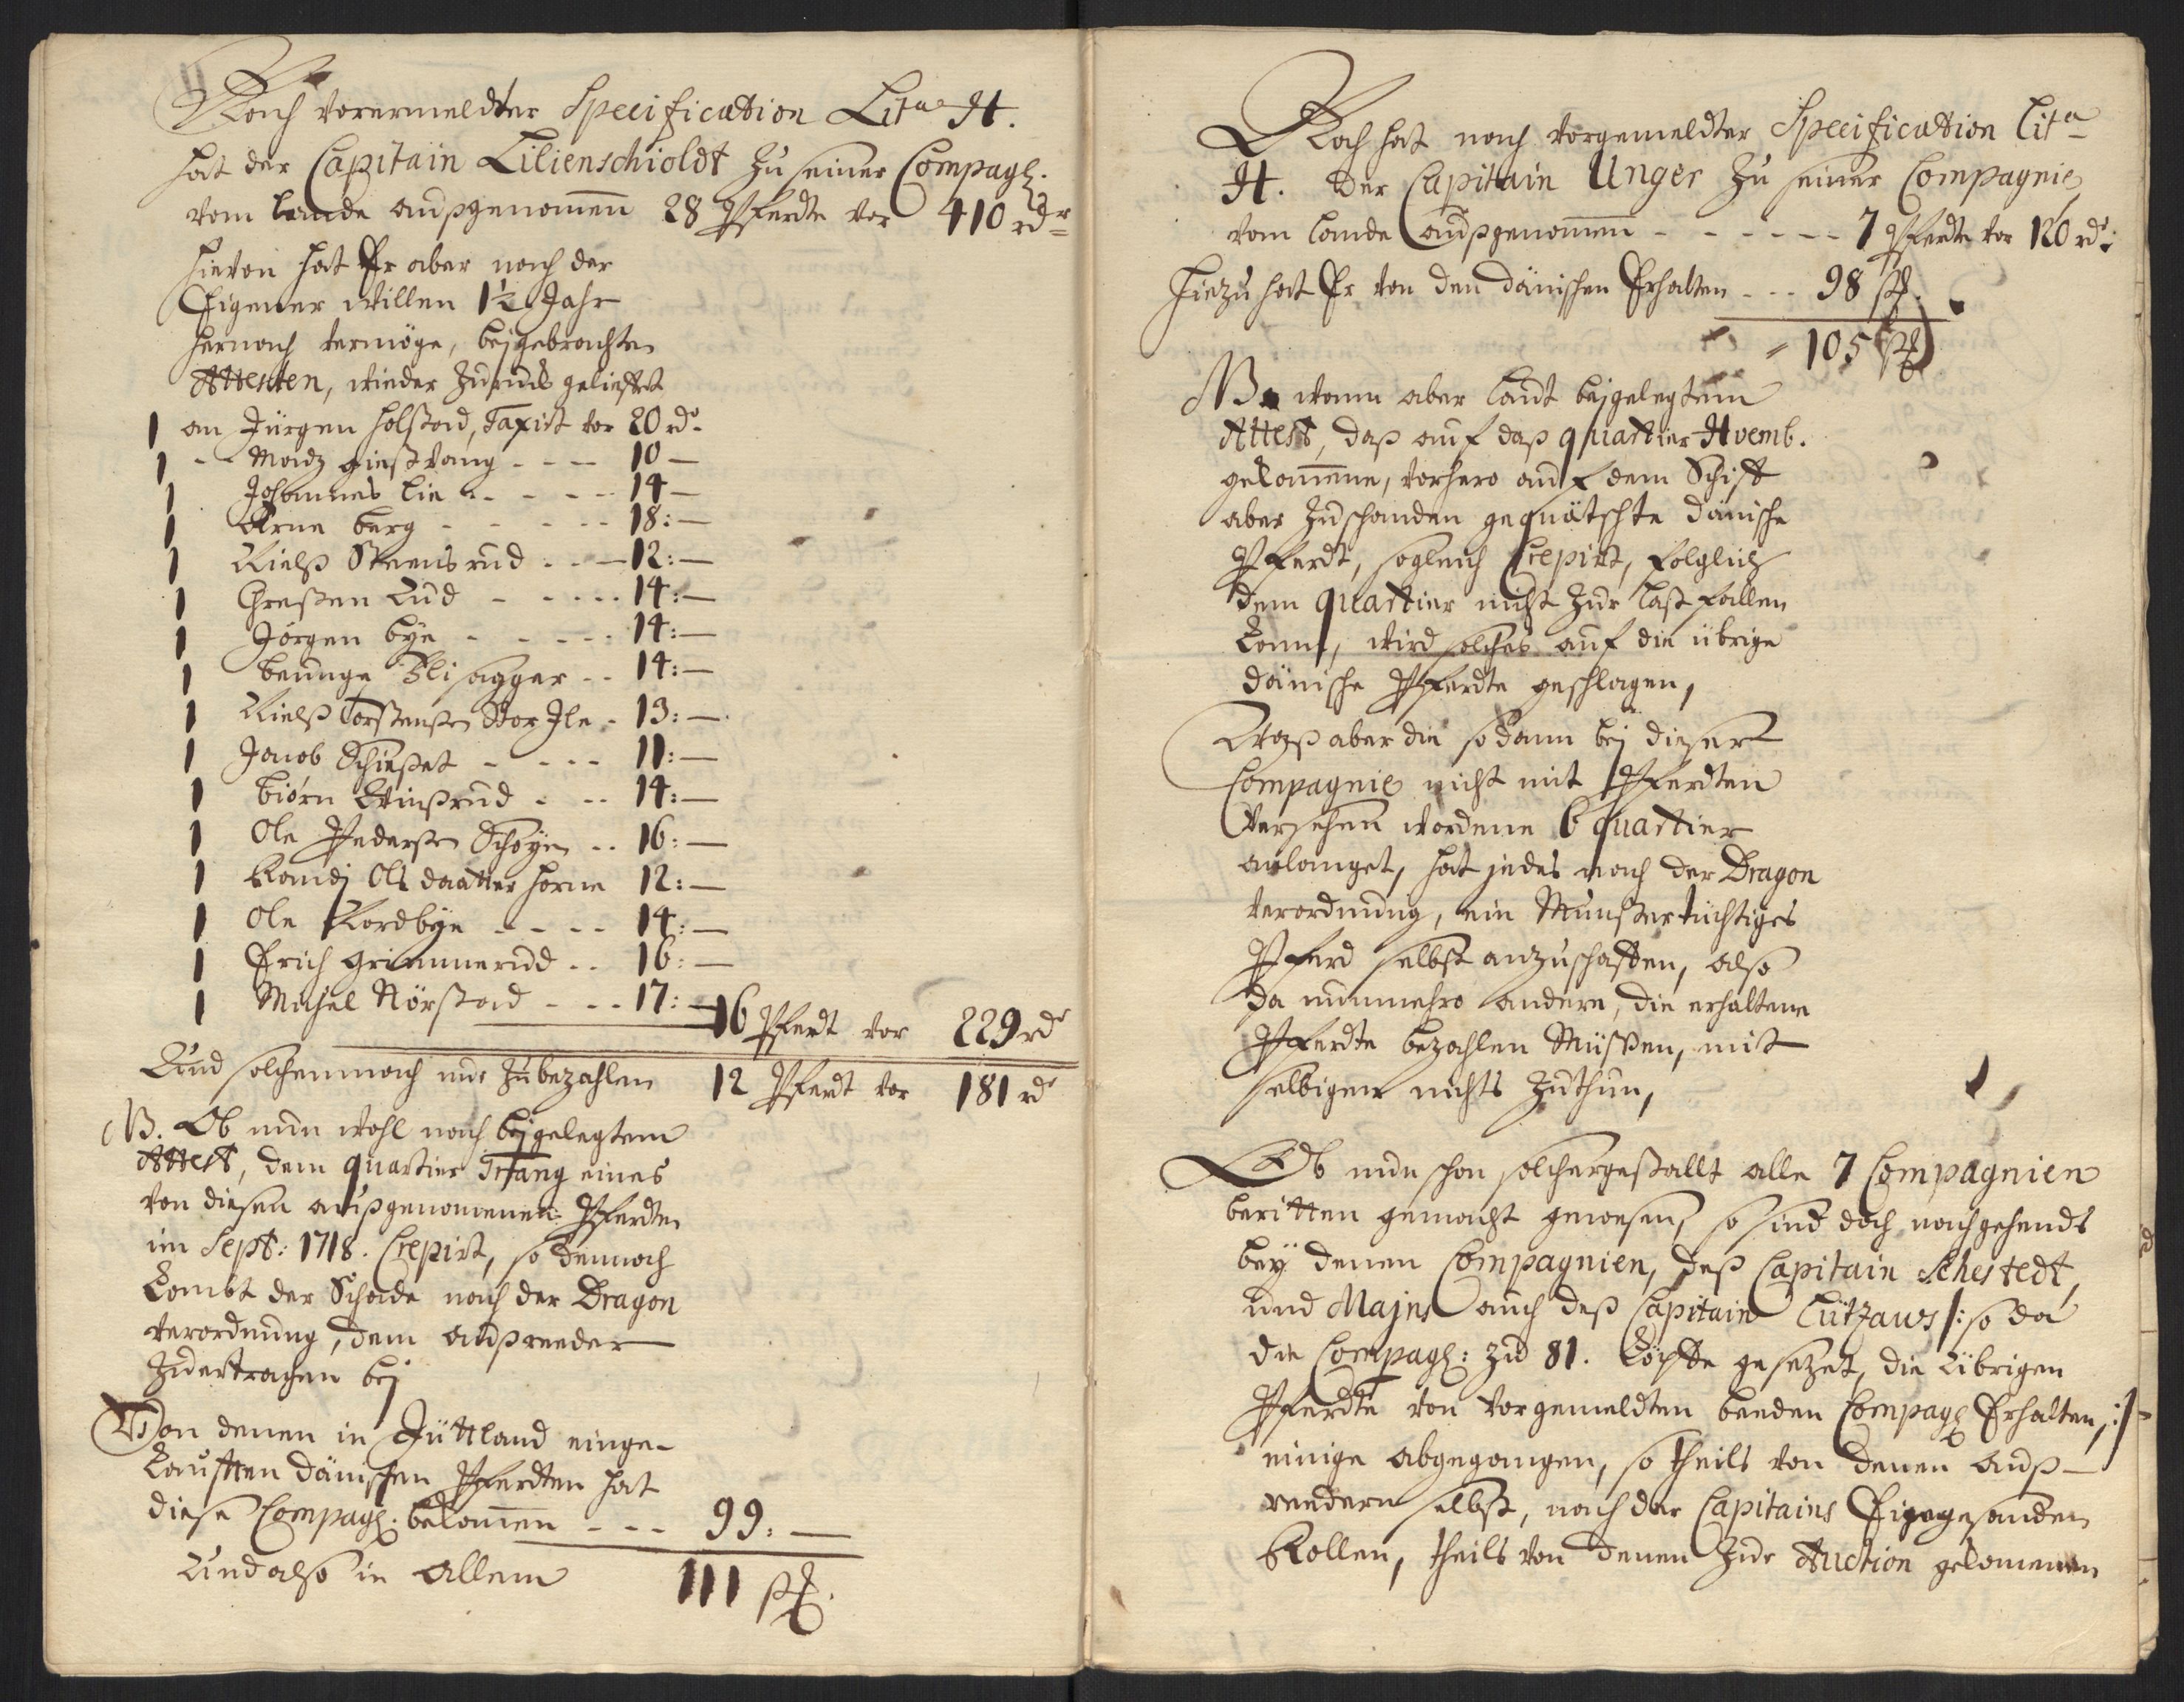 Nach vorermeldter Specification Lit<sup>a</sup> H.
hat der Capitain Lilienschioldt zu seiner Compag.
vom lande außgenomen 28 Pferdte vor 410 rd<sup>r</sup>
hievon hat Er aber nach der
Eigener willen 1½ Jahr
hernach vermöge, beygebrachten
Attesten, wieder zurück geliefert
1 an Jürgen Holstad, taxirt vor 20 rd.
1 - - Madz - - - 10 —
1 Johannes Lie - - - - 14 —
1 Arne berg - - - - - 18: —
1 Nielß Steensrud - - - 12: —
1 Lud - - - - - 14: —
1 Jörgen bye - - - - - 14: —
1 - - 14: —
1 Nielß Torstenßen Stor Jle - 13: —
1 Jacob - - - - 11: —
1 biörn - - - 14: —
1 Ole Pederßen Schøyen - - 16: —
1 Randj Olsdaatter horne 12: —
1 Ole Nordbye - - - - 14: —
1 Erich Grimmerud - - 16: —
1 Michel Nörstad - - - 17: —
16 Pferdt vor 229 rd
Und solchemnach nur zubezahlen 12 Pferdt vor 181 rd
NB. Ob nun wohl nach beygelegtem
Attest, dem quartier eines
von diesen außgenomenen Pferdten
im Sept: 1718. Crepirt, so dennoch
kombt der Schade nach der Dragon
verordnung, dem außreeder
zuertragen bey
Von denen in Jüttland einge-
kaufften dänischen Pferdten hat
diese Compag. bekomen - - - 99: —
Und also in Allem 111 Pf.
Noch hat nach vorgemeldter Specification Lit<sup>a</sup>
H. der Capitain Unger zu seiner Compagnie
vom lande außgenomen - - - - - - 7 Pferdte vor 120 rd:
Hiezu hat Er von den dänischen Erhalten - - - 98 Pf.
105 Pf
NB. wann aber laut beygelegtem
Attest, daß auf daß quartier Hvemb.
gekommene, vorhero auf dem Schiff
aber zuschanden gequätschte dänische
Pferdt, sogleich Crepirt, folglich
dem quartier nicht zur last fallen
kann, wird solches auf die übrige
dänische Pferdte geschlagen,
Waß aber die so dann bey dieser
Compagnie nicht mit Pferdten
versehen wordene 6 quartier
anlanget, hat jedes nach der Dragon
verordnung, ein Munstertüchtiges
Pferd selbst anzuschaffen, also
da nunmehro andere, die erhaltene
Pferdte bezahlen Müßen, mit
selbigen nichts zuthun,
Ob nun schon solchergestallt alle 7 Compagnien
beritten gemacht gewesen, so sind doch nachgehends
bey denen Compagnien, deß Capitain Schestedt,
und Majns auch deß Capitain Lützaus /: so da
die Compag: zu 81. Köpffe gesezet, die Übrigen
Pferdte von vorgemeldten beeden Compag Erhalten, :/
einige abgegangen, so theils von denen auß-
reedern selbst, nach der Capitains Eingesanden
Rollen, theils von denen zur Auction gekomenen